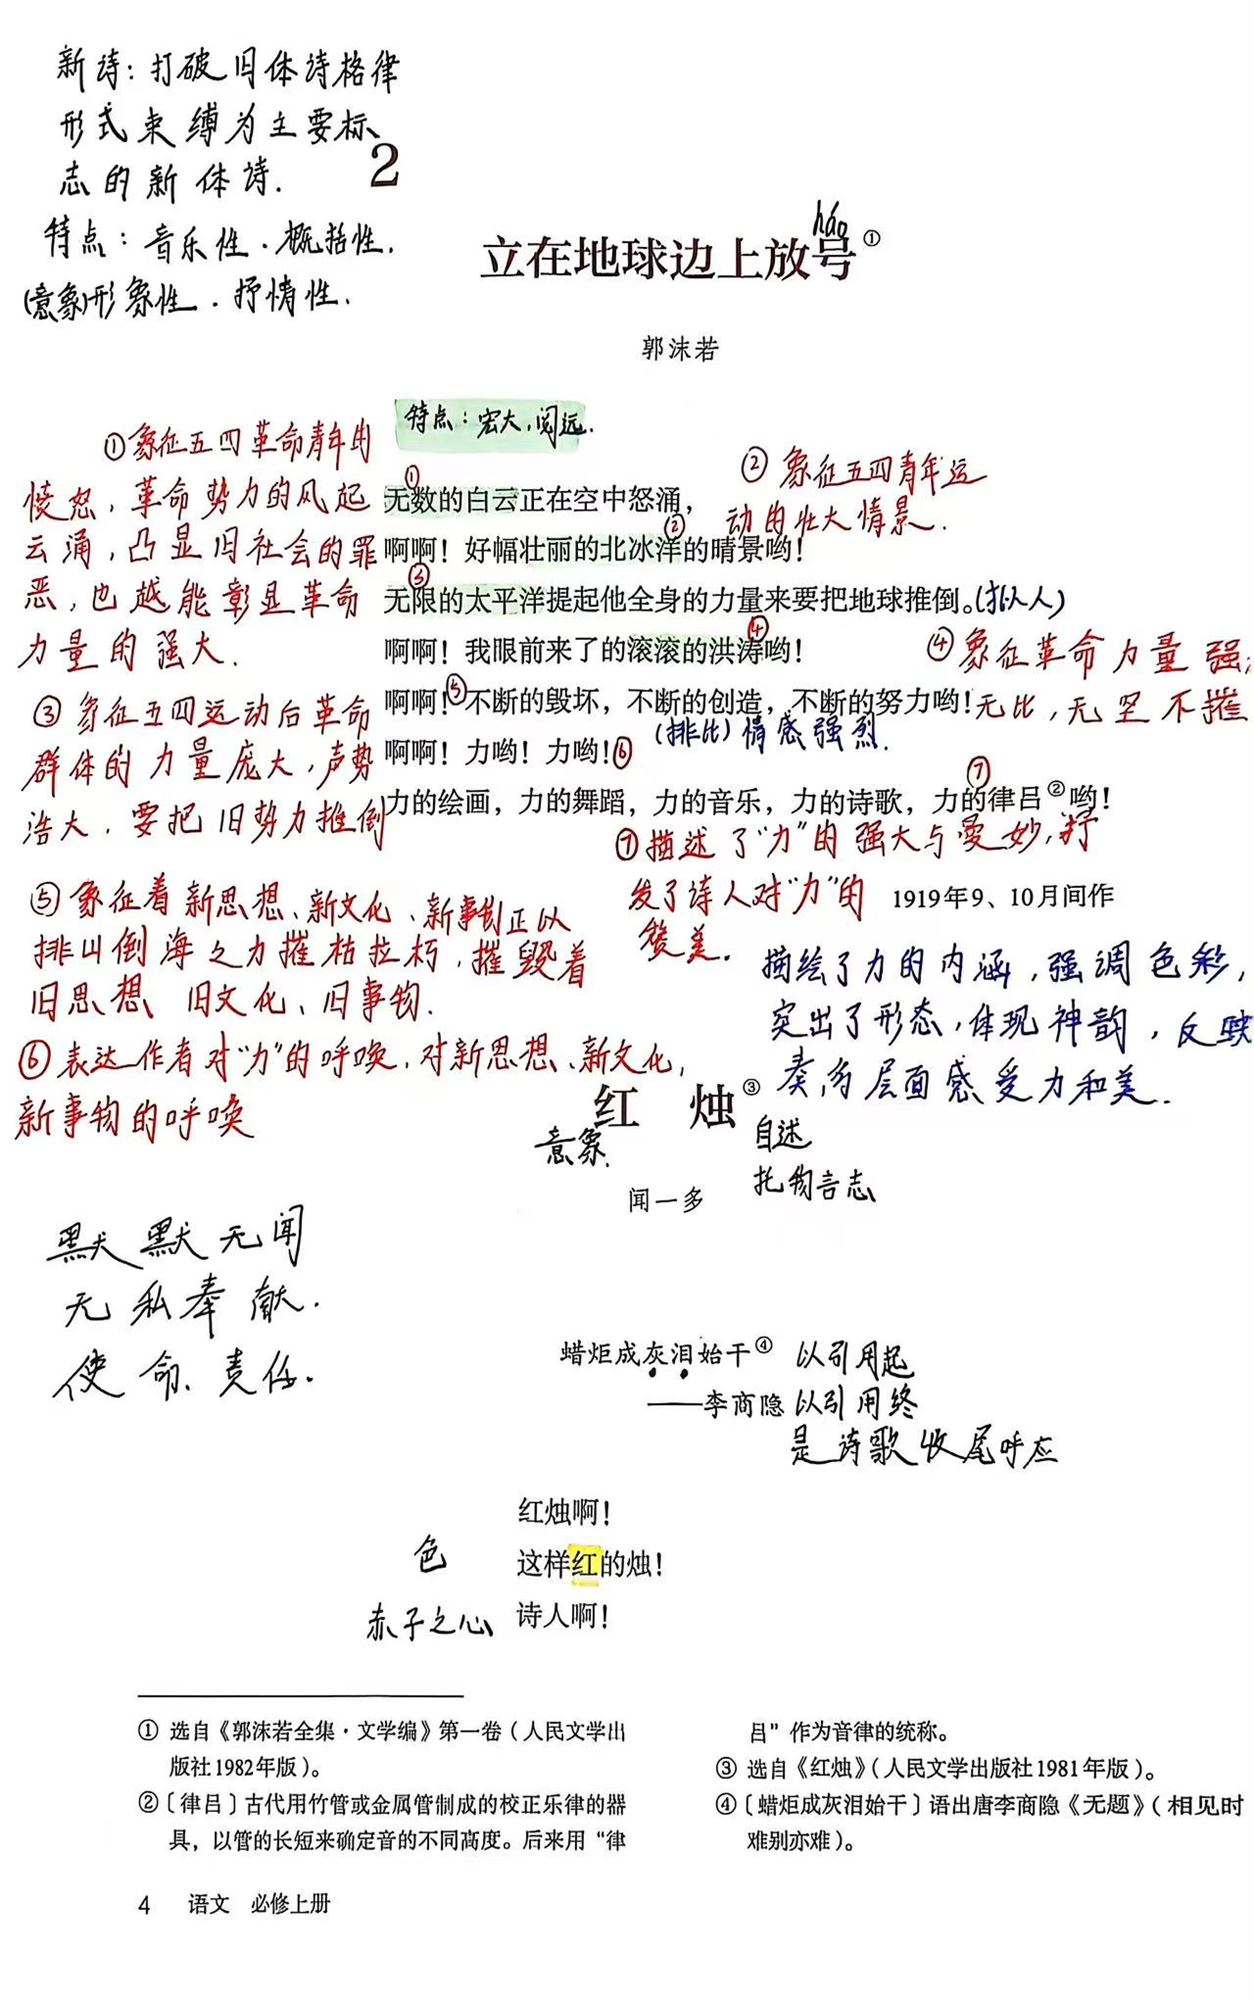 新诗：打破旧体诗格律
形式束缚为主要标
志的新体诗.
特点：音乐性.概括性.
(意象)形象性.抒情性.
2
háo
立在地球边上放号①
郭沫若
特点：宏大,阔远.
①象征五四革命青年的
愤怒,革命势力的风起
云涌,凸显旧社会的罪
恶,也越能彰显革命
力量的强大.
②象征五四青年运
动的壮大情景.
①
无数的白云正在空中怒涌，
②
啊啊！好幅壮丽的北冰洋的晴景哟！
③
无限的太平洋提起他全身的力量来要把地球推倒。(拟人)
④
啊啊！我眼前来了的滚滚的洪涛哟！
④象征革命力量强
无比,无坚不摧
⑤
啊啊！不断的毁坏，不断的创造，不断的努力哟！
(排比)情感强烈.
啊啊！力哟！力哟！⑥
⑦
力的绘画，力的舞蹈，力的音乐，力的诗歌，力的律吕②哟！
③象征五四运动后革命
群体的力量庞大,声势
浩大.要把旧势力推倒
⑦描述了“力”的强大与曼妙,抒
发了诗人对“力”的
赞美.
1919年9、10月间作
⑤象征着新思想、新文化、新事物正以
排山倒海之力摧枯拉朽.摧毁着
旧思想、旧文化、旧事物.
⑥表达作者对“力”的呼唤.对新思想、新文化,
新事物的呼唤
描绘了力的内涵,强调色彩,
突出了形态,体现神韵,反映
奏,多层面感受力和美.
红 烛③
意象.
自述
托物言志
闻一多
默默无闻
无私奉献.
使命、责任.
蜡炬成灰泪始干④
——李商隐
以引用起
以引用终
是诗歌收尾呼应
红烛啊！
色
这样红的烛！
赤子之心
诗人啊！
① 选自《郭沫若全集·文学编》第一卷（人民文学出
版社1982年版）。
②〔律吕〕古代用竹管或金属管制成的校正乐律的器
具，以管的长短来确定音的不同高度。后来用“律
吕”作为音律的统称。
③ 选自《红烛》（人民文学出版社1981年版）。
④〔蜡炬成灰泪始干〕语出唐李商隐《无题》（相见时
难别亦难）。
4 语文 必修上册